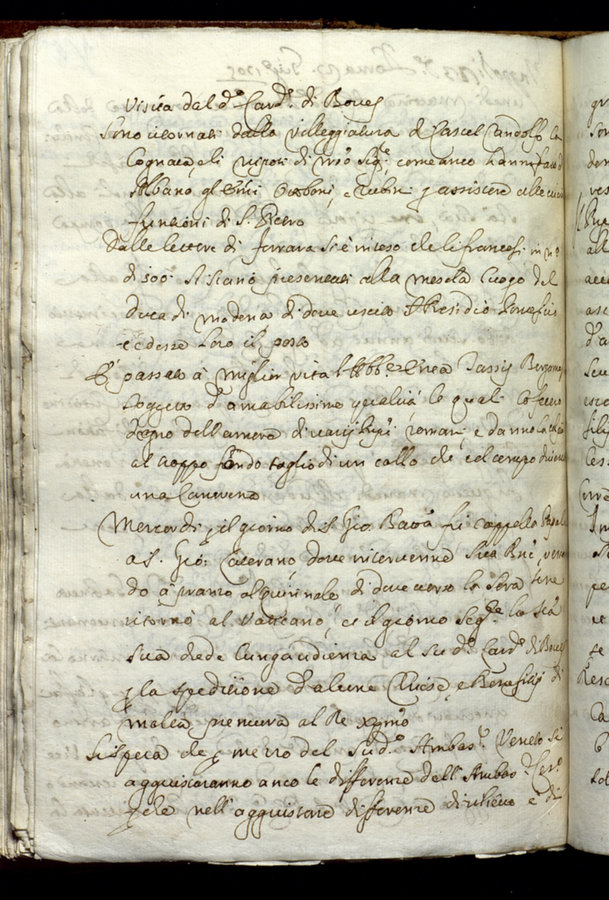 Visita dal d.º Card.e di Boves
Sono ritornati dalla Villeggiatura di Castel Gandolfo la
Cognata, e li nipoti di N'ro Sig.re come anco hanno fatto d'
Albano gl'Em.i Ottoboni, e Rubini p assistere alle
funtioni di S. Pietro
Dalle lettere di ferrara si è inteso che li francesi in nº
di 300 si siano presentati alla mesola luogo del
duca di modena di dove uscito il Presidio
cedesse loro il posto
È passato à miglior vita l'Abb.e Enea Tassis Bergamº
soggetto d'amabilissime qualità le quali lo fecero
degno dell'amore di varij Ppi romani, e danno la colpa
al troppo fondo taglio di un callo che col tempo divenne
una Cancrena
Mercordì p il giorno di S. Gio: Batta fù cappella Papale
a S. Gio: Laterano dove intervenne Sua Bne, 
do à pranzo al quirinale di dove verso la sera
ritornò al Vaticano, et il giorno seg.te la Stà
Sua diede lunga audienza al sud.º Card.e di
p la speditione d'alcune Chiese, e Beneficij di
molta premura al Re xpmo
Si spera che p mezzo del sud.º Ambas.r Veneto si
aggiustaranno anco le differenze dell'Ambas.r Ces.º
p che nell'aggiustare differenze di rilievo e di